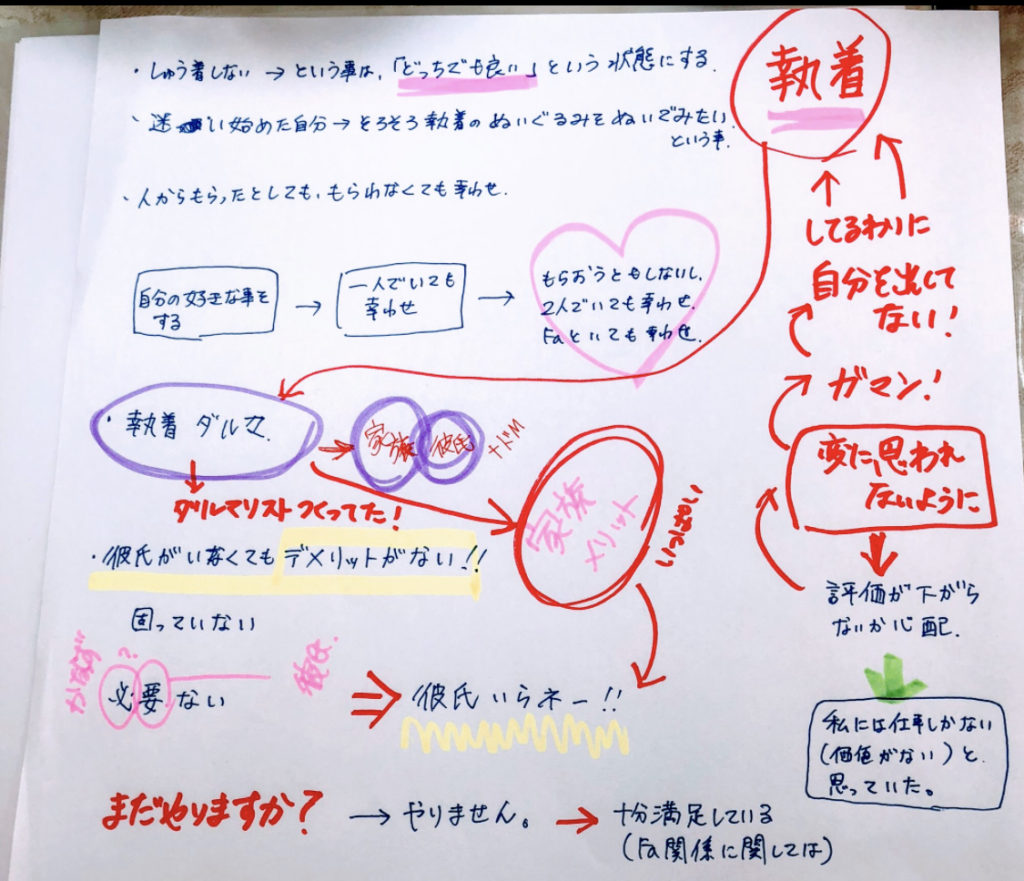 執着
・しゅう着しない → という事は、「どっちでも良い」という状態にする.
・迷い始めた自分 → そろそろ執着のぬいぐるみをぬいでみたい
という事.
・人からもらったとしても、もらわなくても幸わせ.
自分の好きな事を
する
→
一人でいても
幸わせ
→
もらおうともしないし、
2人でいても幸わせ.
Faといても幸わせ.
してるわりに
自分を出して
ない!
ガマン!
変に思われ
ないように
評価が下がら
ないか心配.
私には仕事しかない
(価値がない)と
思っていた。
・執着ダル女.
家族
彼氏
ナドM
ダルマリストつくってた!
家族
メリット
いっぱい
・彼氏がいなくてもデメリットがない!!
困っていない
かならず
?
必要ない
彼氏.
⇒ 彼氏いらネー!!
まだやりますか? → やりません。 → 十分満足している
(Fa関係に関しては)